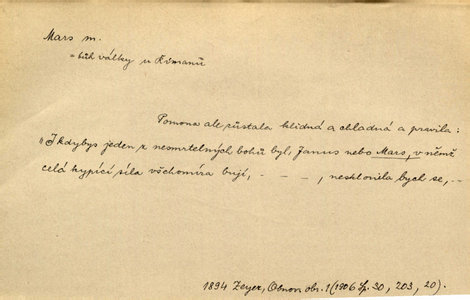 Mars m.
= bůh války u Římanů
Pomona ale zůstala klidná a chladná a pravila :
"I kdybys jeden z nesmrtelných bohů byl, Janus nebo Mars, v němž
celá kypící síla všehomíra bují, - - - , nesklonila bych se, --
1894 Zeyer, Obnov. obr. 1 (1906 Sp. 30, 203, 20).